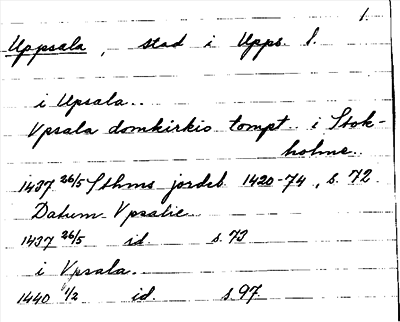 1.
Uppsala, stad i Upps. l.
i Upsala..
Vpsala domkirkio tompt. i Stok-
holme..
1437 26/5 Sthms jordeb. 1420-74, s. 72.
Datum Vpsalie..
1437 26/5 id. s. 73
i Vpsala..
1440 1/2 id. s. 97.